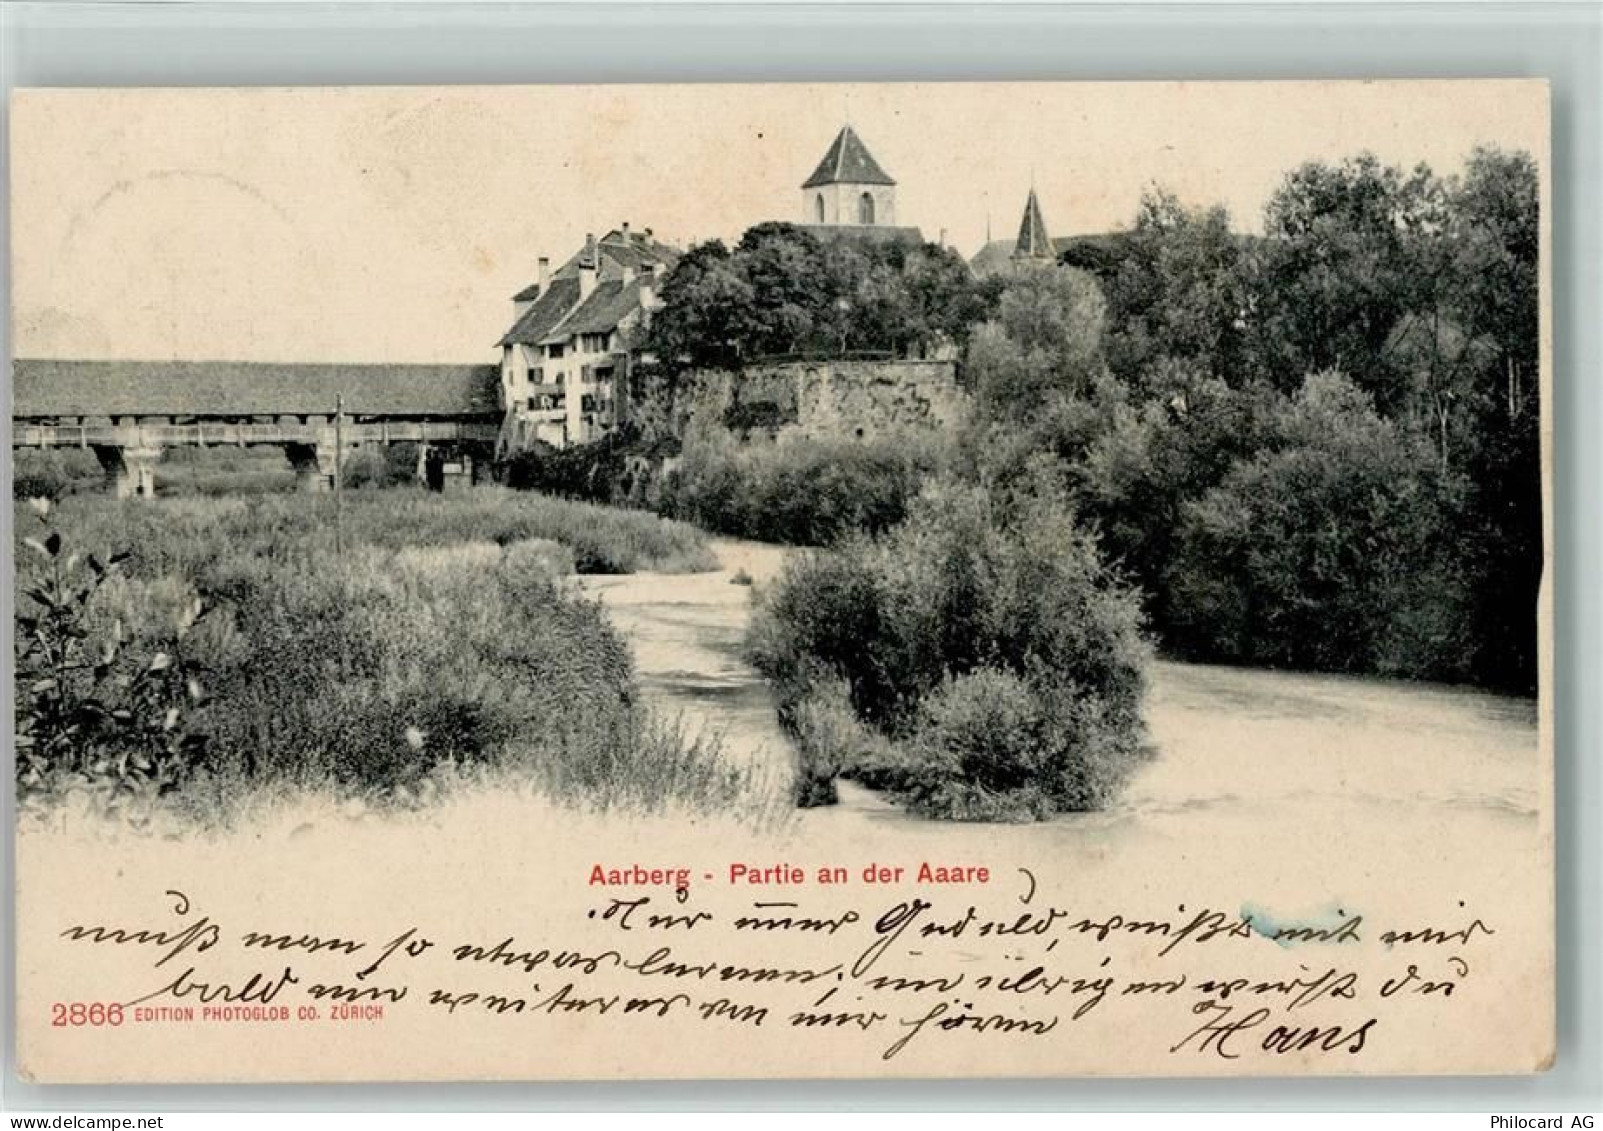 Aarberg - Partie an der Aaare
Nur immer Geduld, weißt mit mir
muß man so etwas lernen; im übrigen wirst du
bald ein weiteres von mir hören
Hans
2866 EDITION PHOTOGLOB CO. ZÜRICH
Philocard AG
www.delcampe.net